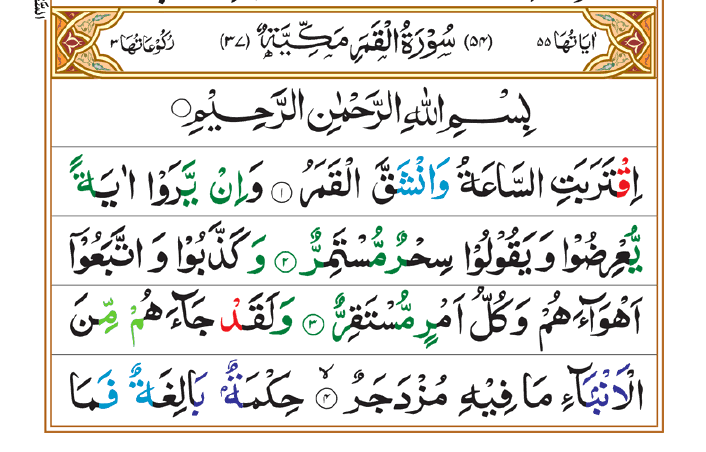 اٰيَاتُهَا ٥٥ (٥٤) سُوْرَةُ الْقَمَرِ مَكِّيَّةٌ (٣٧) رُكُوْعَاتُهَا ٣
بِسْمِ اللّٰهِ الرَّحْمٰنِ الرَّحِيْمِ
اِقْتَرَبَتِ السَّاعَةُ وَانْشَقَّ الْقَمَرُ ١ وَاِنْ يَّرَوْا اٰيَةً
يُّعْرِضُوْا وَيَقُوْلُوْا سِحْرٌ مُّسْتَمِرٌّ ٢ وَكَذَّبُوْا وَاتَّبَعُوْٓا
اَهْوَآءَهُمْ وَكُلُّ اَمْرٍ مُّسْتَقِرٌّ ٣ وَلَقَدْ جَآءَهُمْ مِّنَ
الْاَنْۢبَآءِ مَا فِيْهِ مُزْدَجَرٌ ۙ ٤ حِكْمَةٌۢ بَالِغَةٌ فَمَا